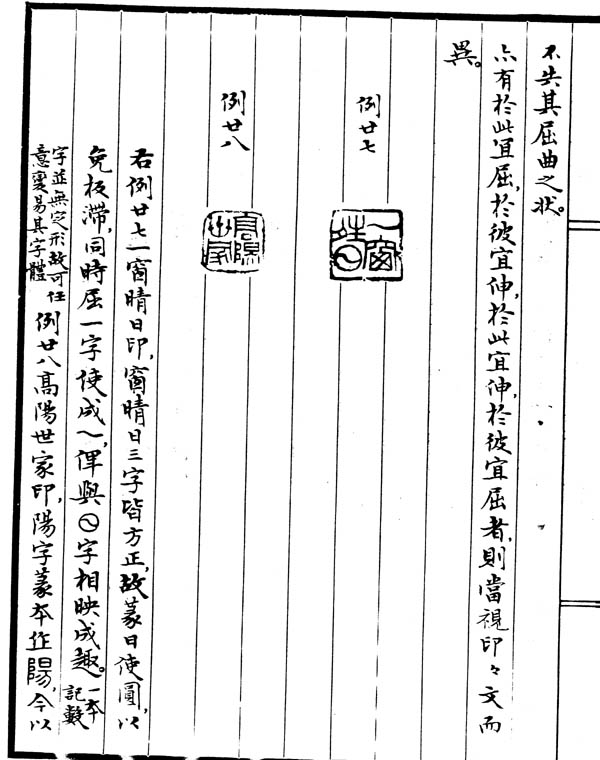 不失其屈曲之狀。
亦有於此宜屈，於彼宜伸，於此宜伸，於彼宜屈者，則當視印々文而
異。
例廿七
一窗晴日
例廿八
高陽世家
右例廿七一窗晴日印，窗晴日三字皆方正，故篆日使圓，以
免板滯，同時屈一字使成〜，俾與字相映成趣。一本記數
字並無定形故可任意變易其字體 例廿八高陽世家印，陽字篆本作陽，今以